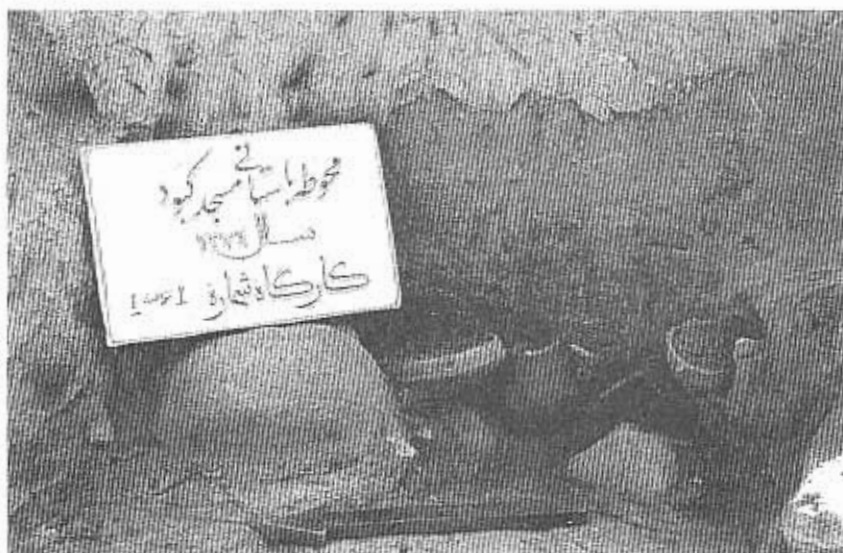 محوطه باستانی مسجد کبود
سال ۱۳۷۶
کارگاه شماره